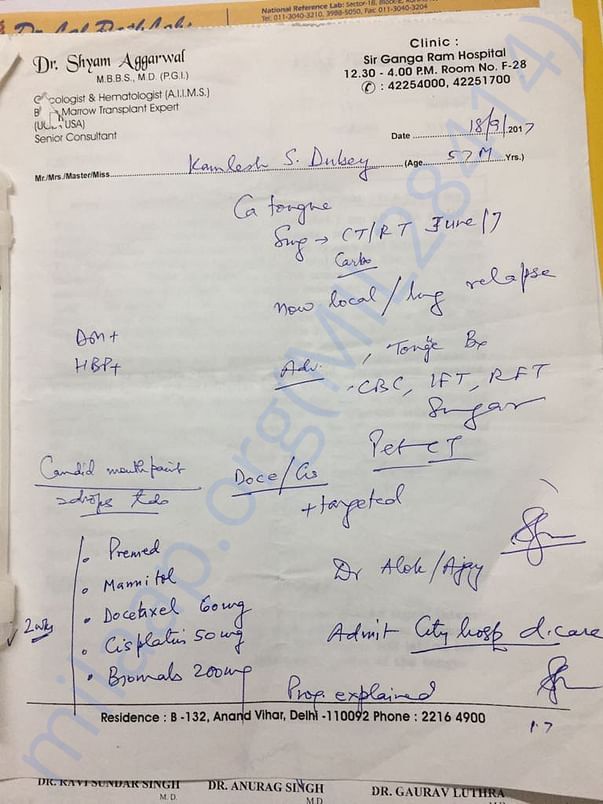 National Reference Lab: Sector-18, Block-E,
Tel: 011-3040-3210, 3988-5050, Fax: 011-3040-3204
Dr. Shyam Aggarwal
M.B.B.S., M.D. (P.G.I.)
cologist & Hematologist (A.I.I.M.S.)
B Marrow Transplant Expert
USA)
Senior Consultant
Clinic :
Sir Ganga Ram Hospital
12.30 - 4.00 P.M. Room No. F-28
: 42254000, 42251700
Date 18/9/2017
Mr./Mrs./Master/Miss Kamlesh S. Dubey (Age 57 M Yrs.)
Ca tongue
Surg → CT/RT June 17
Carbo
now local / lung relapse
DM+
HBP+
Adv. , Tongue Bx
CBC, LFT, RFT
Sugar
Pet CT
Candid mouth paint
2drops tds
Doce/Cis
+ targeted
Premed
Mannitol
Docetaxel 60mg
Cisplatin 50mg
Biomab 200mg
2 wkly
Dr Alok/Ajay
Admit City hosp d.care
Prog. explained
Residence : B -132, Anand Vihar, Delhi -110092 Phone : 2216 4900
DR. RAVI SUNDAR SINGH
M.D.
DR. ANURAG SINGH
M.D
DR. GAURAV LUTHRA
milaap.org(MIL28414)